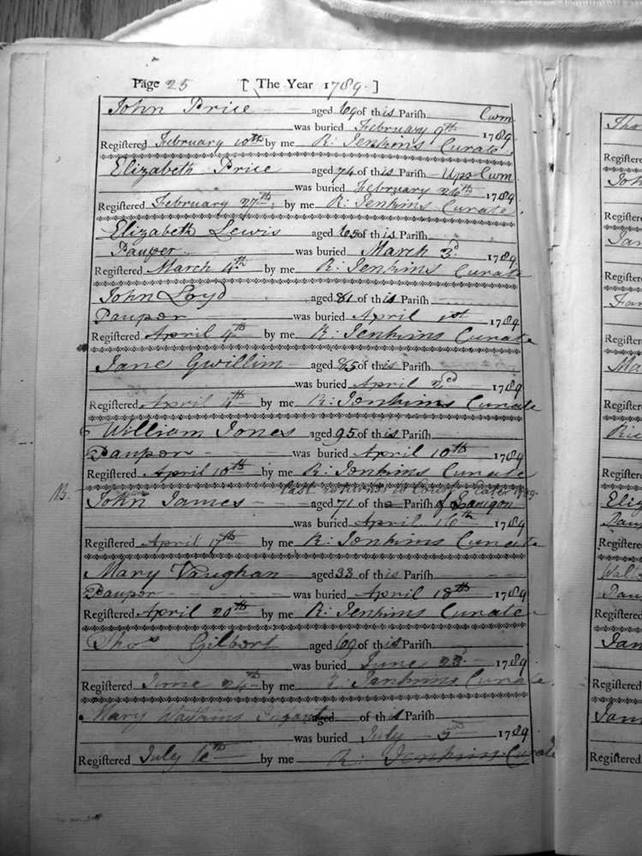 Page 25 [ The Year 1789. ]
John Price aged 69 of this Parish Cwm
was buried February 9th 1789
Registered February 10th by me R: Jenkins Curate
Elizabeth Price aged 74 of this Parish Cwm
was buried February 26th 1789
Registered February 27th by me R: Jenkins Curate
Elizabeth Lewis aged 65 of this Parish
Pauper was buried March 3d 1789
Registered March 4th by me R: Jenkins Curate
John Loyd aged 81 of this Parish
Pauper was buried April 1st 1789
Registered April 4th by me R: Jenkins Curate
Jane Gwillim aged 85 of this Parish
was buried April 2d 1789
Registered April 4th by me R: Jenkins Curate
William Jones aged 95 of this Parish
Pauper was buried April 10th 1789
Registered April 10th by me R: Jenkins Curate
last returned to Court
John James aged 71 of the Parish of
was buried April 16th 1789
Registered April 17th by me R: Jenkins Curate
Mary Vaughan aged 33 of this Parish
Pauper was buried April 18th 1789
Registered April 20th by me R: Jenkins Curate
Thos Gilbert aged 69 of this Parish
was buried June 23 1789
Registered June 24th by me R: Jenkins Curate
Mary Watkins aged of this Parish
was buried July 5th 1789
Registered July 6th by me R: Jenkins Curate
Tho
Registered
Joh
Registered
Jan
Registered
Registered
Ma
Registered
Ric
Registered
Eliz
Paup
Registered
Wal
Pau
Registered
Jan
Registered
Registered